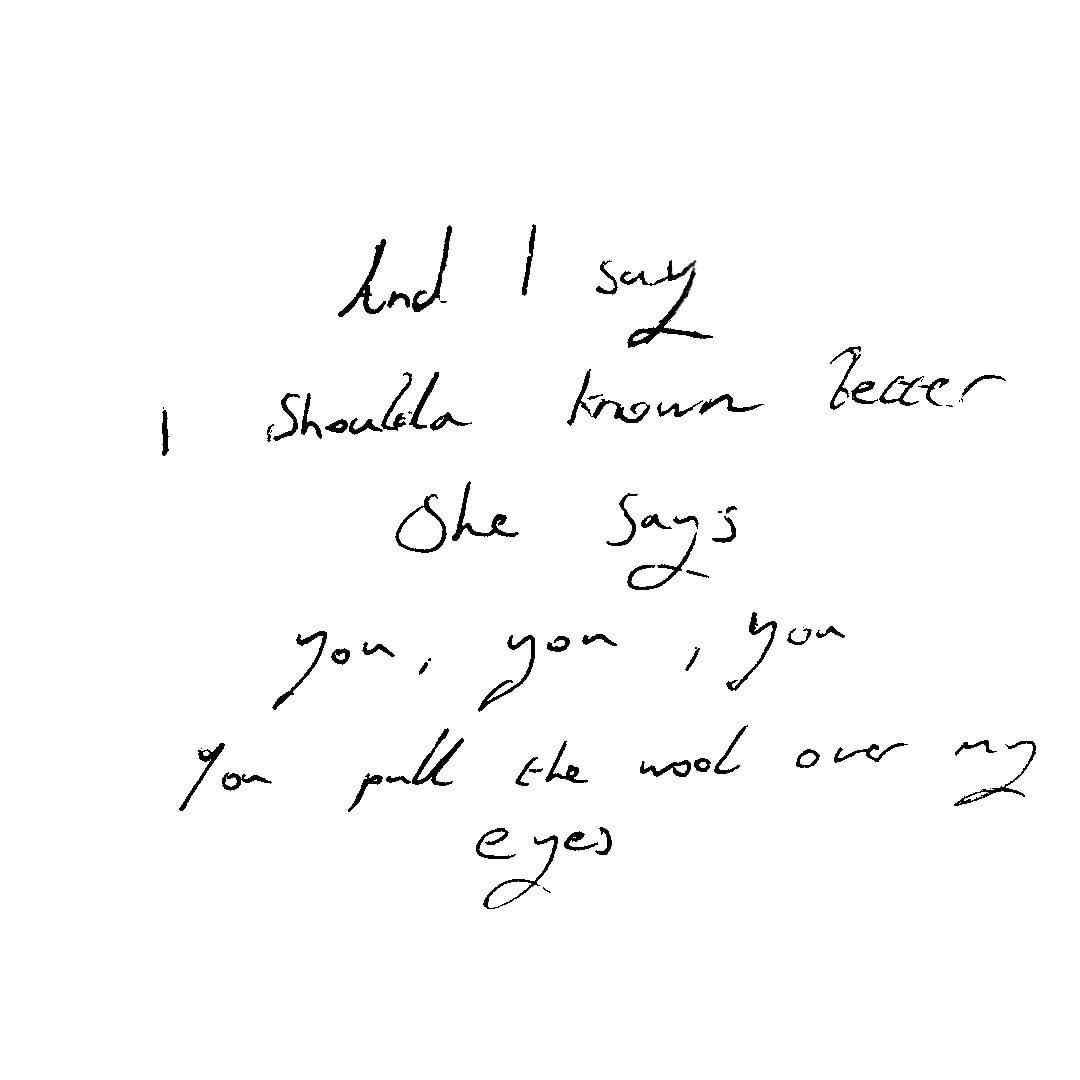 And I say
I Shoulda known better
She says
you, you, you
You pull the wool over my
eyes